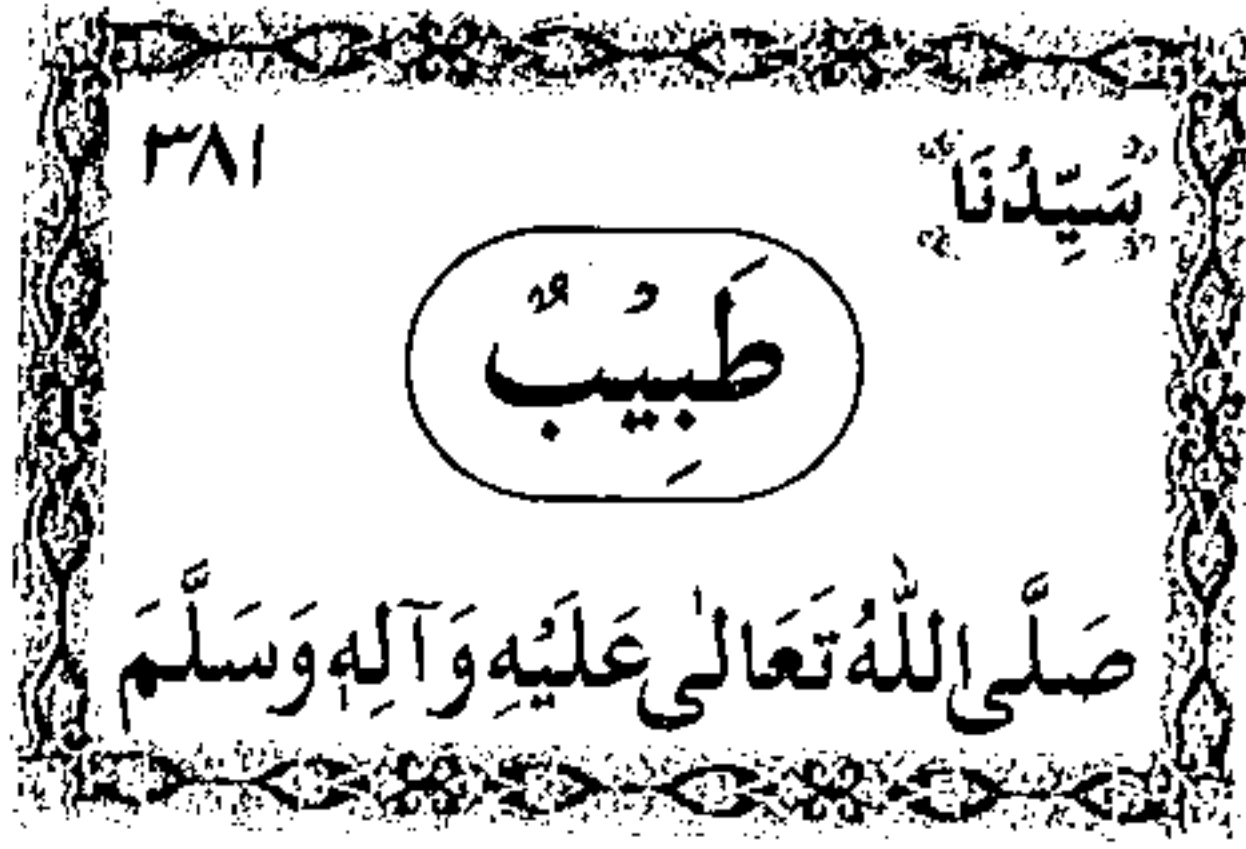 سَيِّدُنَا ٣٨١
طَبِيْبٌ
صَلَّى اللّٰهُ تَعَالٰى عَلَيْهِ وَآلِهٖ وَسَلَّمَ